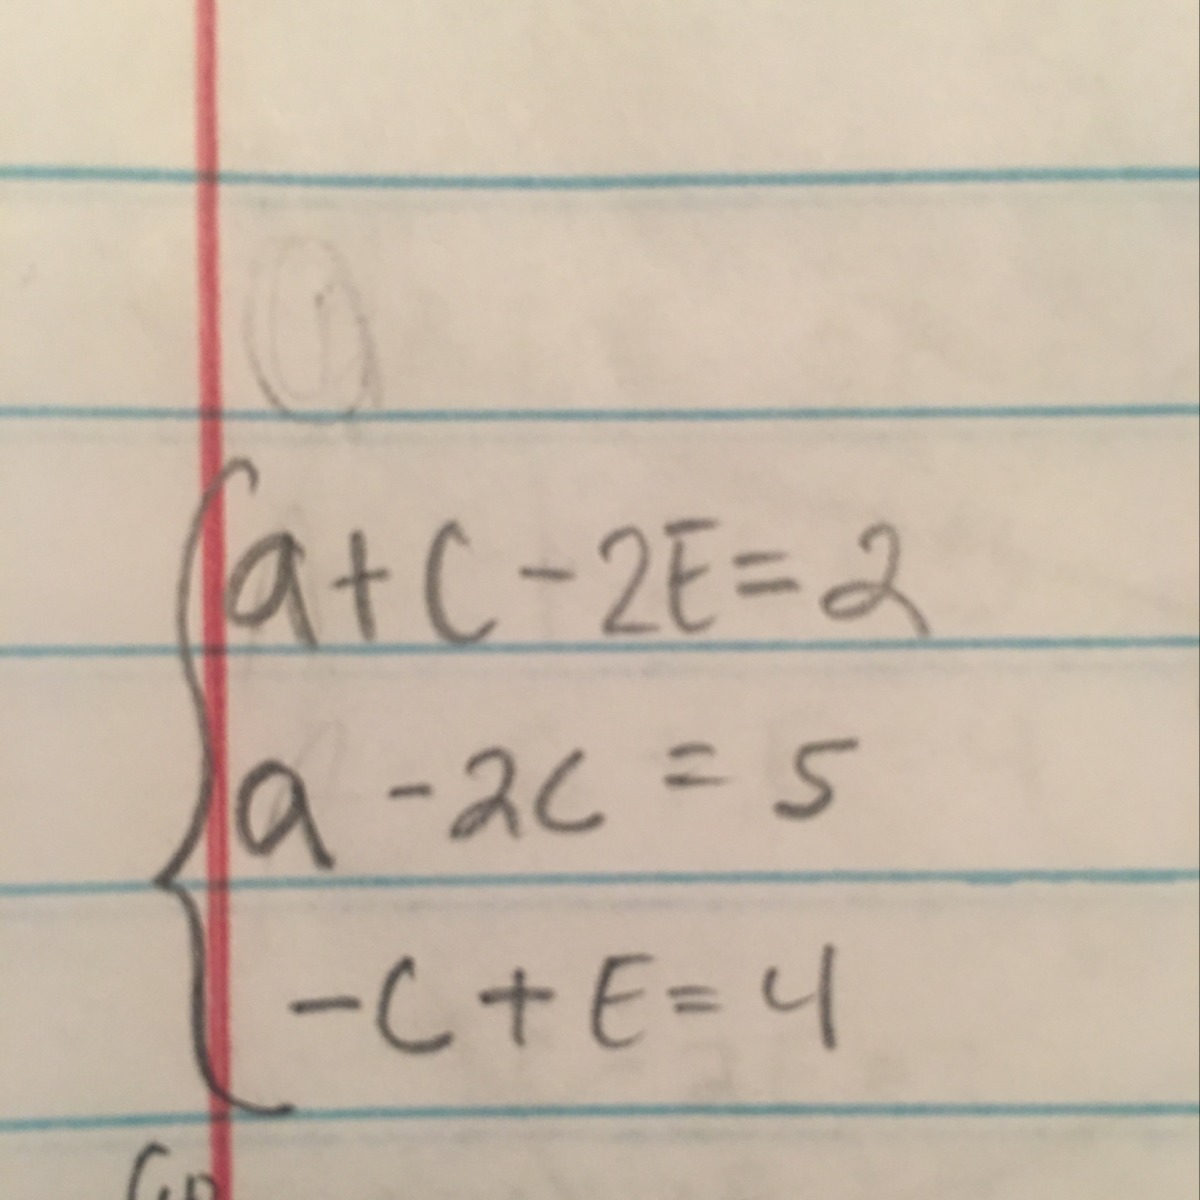 a + C - 2E = 2
a - 2C = 5
-C + E = 4